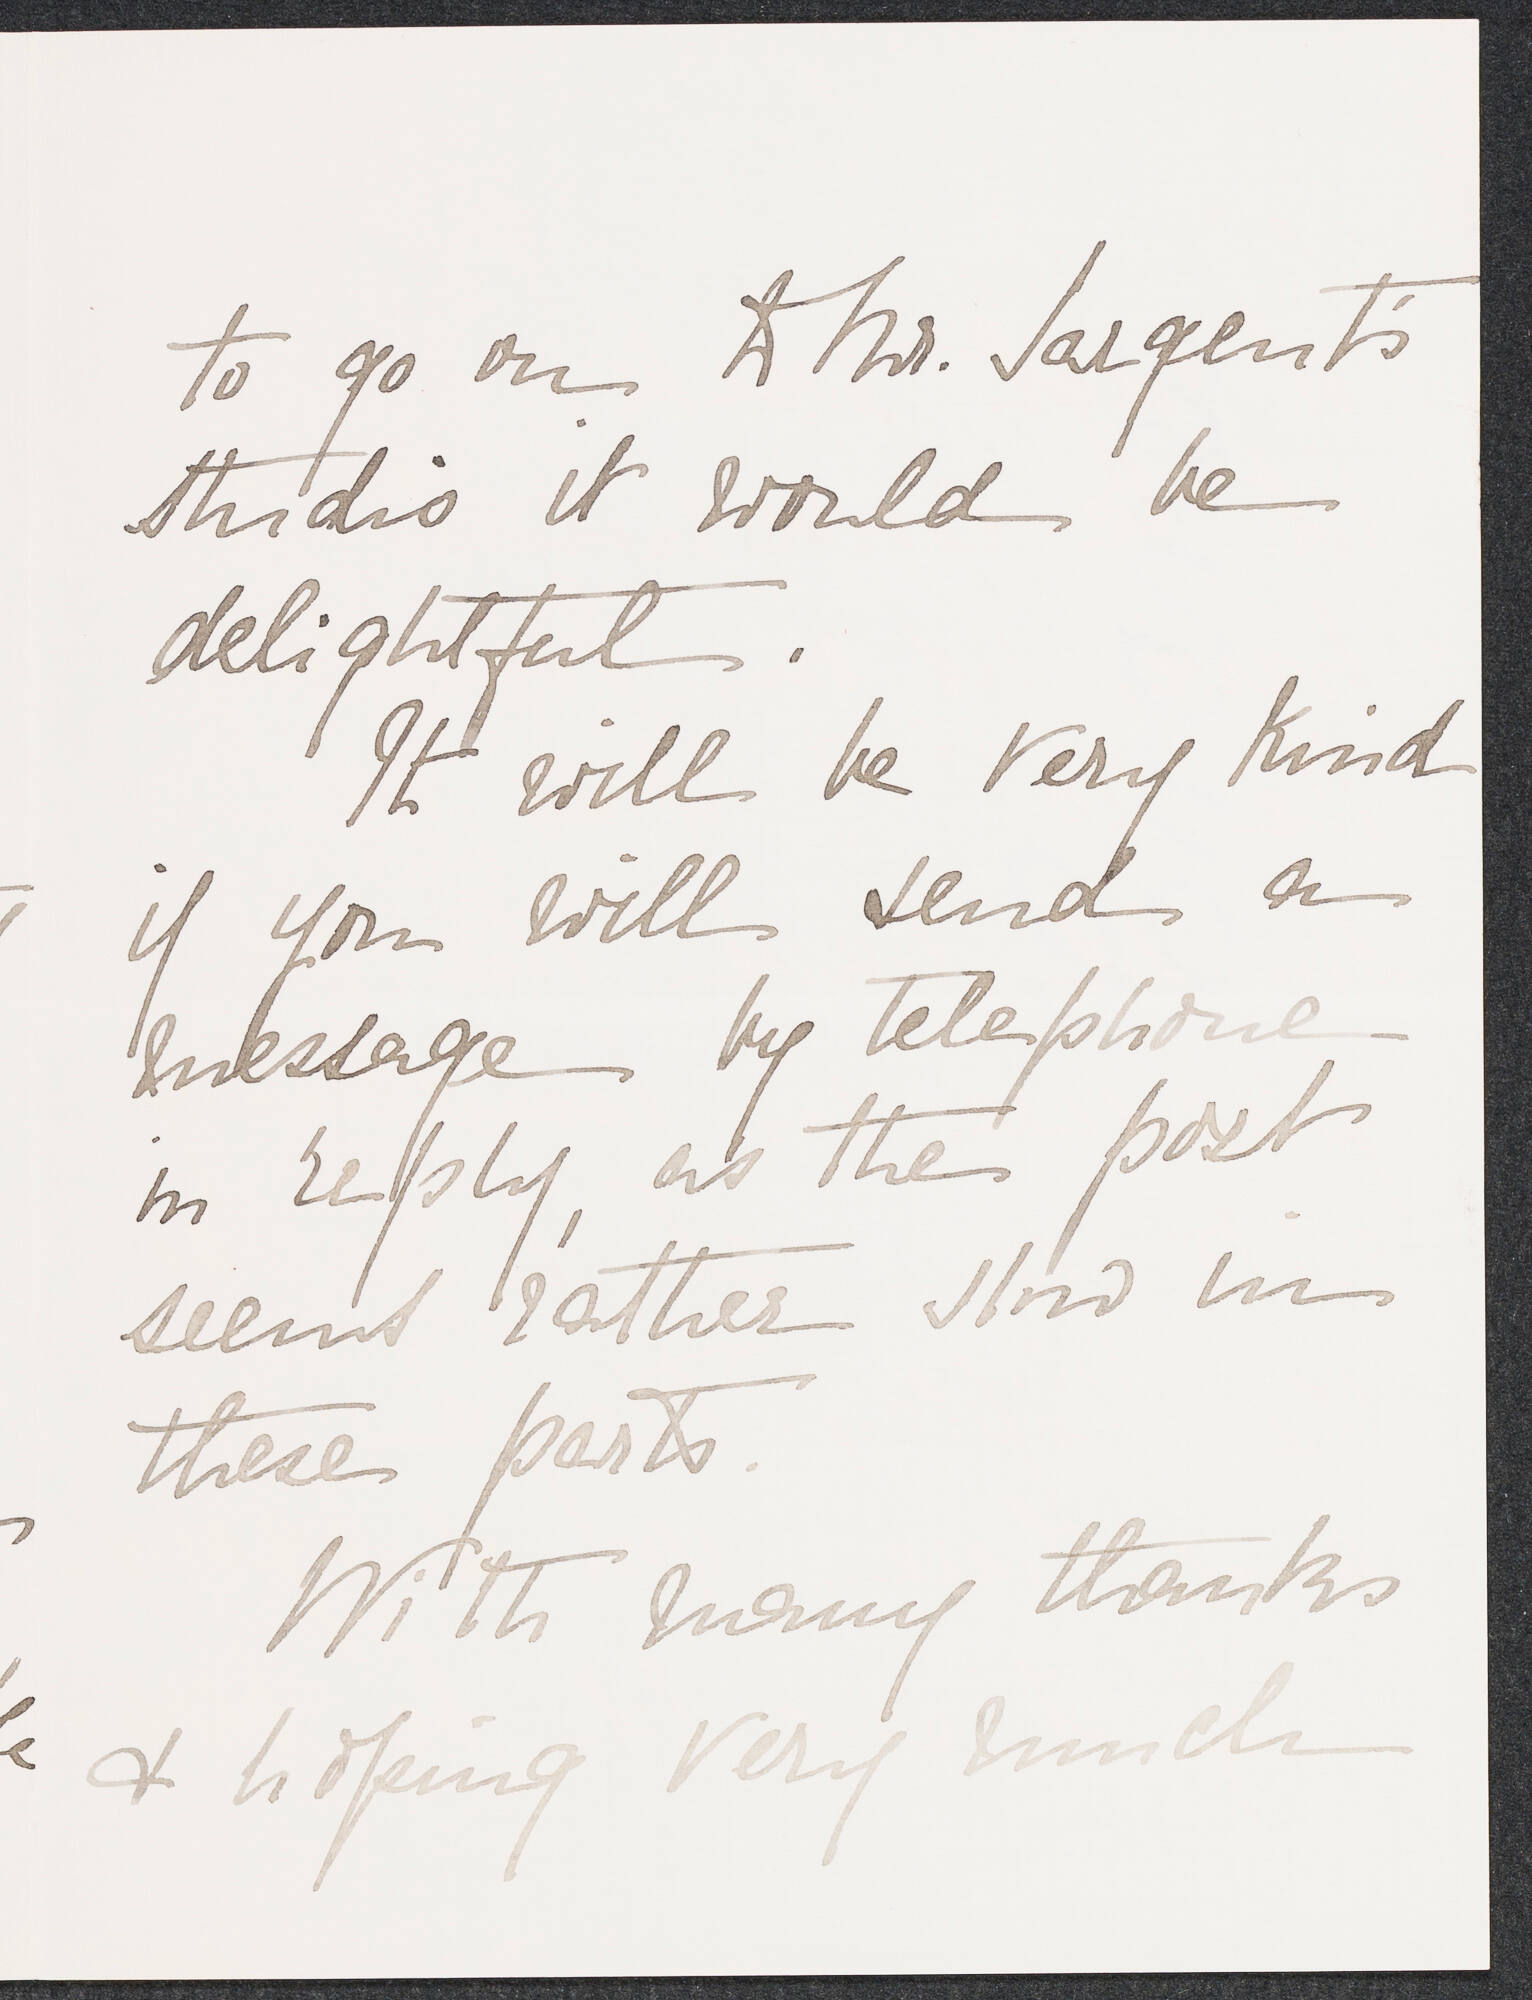 to go on to Mr. Sargent's
studio it would be
delightful.
It will be very kind
if you will send a
message by telephone
in reply, as the post
seems rather slow in
these parts.
With many thanks
& hoping very much